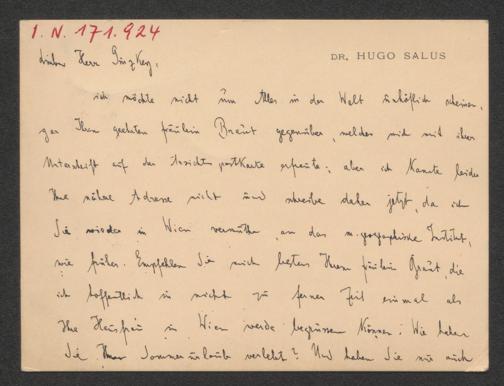 I. N. 171.924
DR. HUGO SALUS
Lieber Herr
ich möchte nicht um Alles in der Welt unhöflich scheinen,
gar Ihrem geehrten Fräulein Braut gegenüber, welches mich mit ihrer
Unterschrift auf der Ansichtspostkarte erfreute; aber ich kannte leider
Ihre nähere Adresse nicht und schreibe daher jetzt, da ich
Sie wieder in Wien vermuthe, an das m. geographische Institut,
wie früher. Empfehlen Sie mich bestens Ihrem Fräulein Braut, die
ich hoffentlich in nicht zu ferner Zeit einmal als
Ihre Hausfrau in Wien werde begrüssen können. Wie haben
Sie Ihren Sommerurlaub verlebt? Und haben Sie mir auch